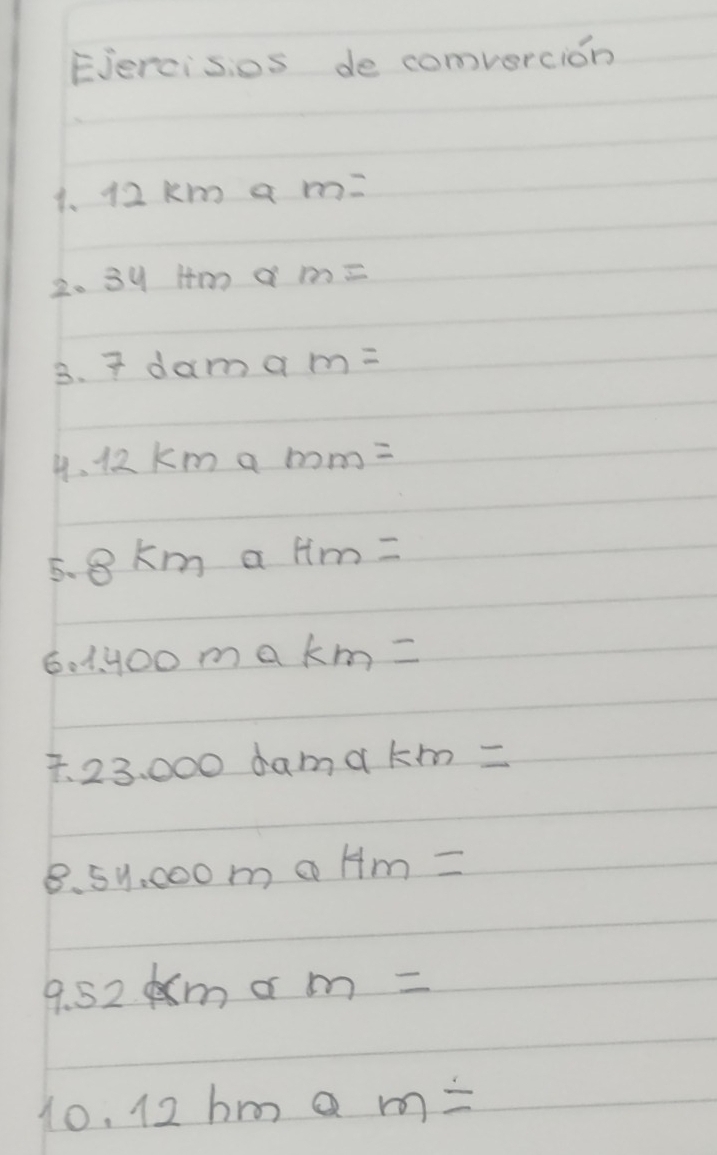 Ejercisios de comverción
1. 12 km a m=
2. 34 Hm a m=
3. 7 dam a m=
4. 12 km a mm=
5. 8 km a Hm=
6. 1.400 m a km=
7. 23.000 dam a km=
8. 54.000 m a Hm=
9. 52 km a m=
10. 12 hm a m=